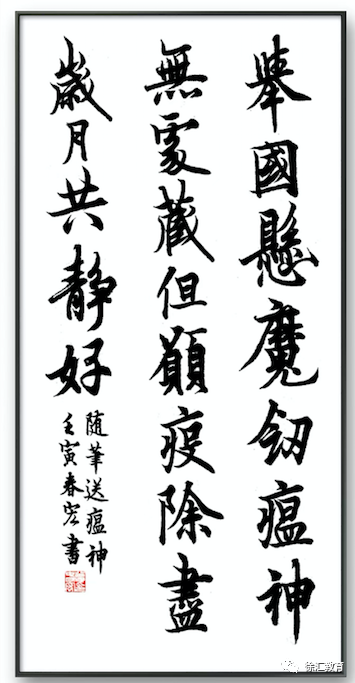 舉國懸魔劒瘟神
無處藏但願疫除盡
歲月共靜好
随筆送瘟神
壬寅春宏書
徐汇教育